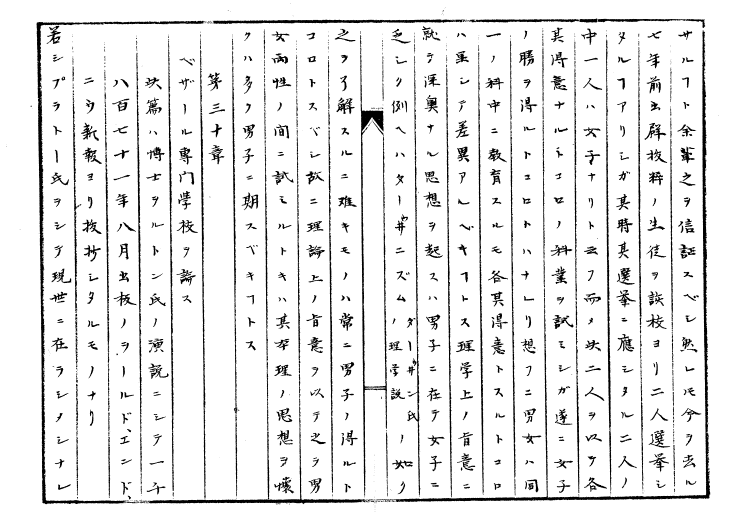 サルフト余輩之ヲ信証スベシ然レ𪜈今ヲ去ル
七年前出群抜粋ノ生徒ヲ該校ヨリ二人選挙シ
タルヿアリシガ其時其選挙ニ應シタル二人ノ
中一人ハ女子ナリト云フ而メ此二人ヲ以テ各
其得意ナルトコロノ科業ヲ試ミシガ遂ニ女子
ノ勝ヲ得ルトコロトハナレリ想フニ男女ハ同
一ノ科中ニ教育スルモ各其得意トスルトコロ
ハ虽シテ差異アルベキヿトス理学上ノ旨意ニ
就テ深奥ナル思想ヲ起スハ男子ニ在テ女子ニ
乏シク例ヘハターヰニズムダーヰン氏ノ理学説ノ如ク
之ヲ了解スルニ難キモノハ常ニ男子ノ得ルト
コロトスベシ試ニ理論上ノ旨意ヲ以テ之ヲ男
女両性ノ間ニ試ミルトキハ其本理ノ思想ヲ懐
クハ多ク男子ニ期スベキヿトス
第三十章
ベザール専門学校ヲ論ス
此篇ハ博士ヲルトン氏ノ演説ニシテ一千
八百七十一年八月出板ノヲールド、エンド、
ニウ新報ヨリ抜抄シタルモノナリ
若シプラトー氏ヲシテ現世ニ在ラシメシナレ